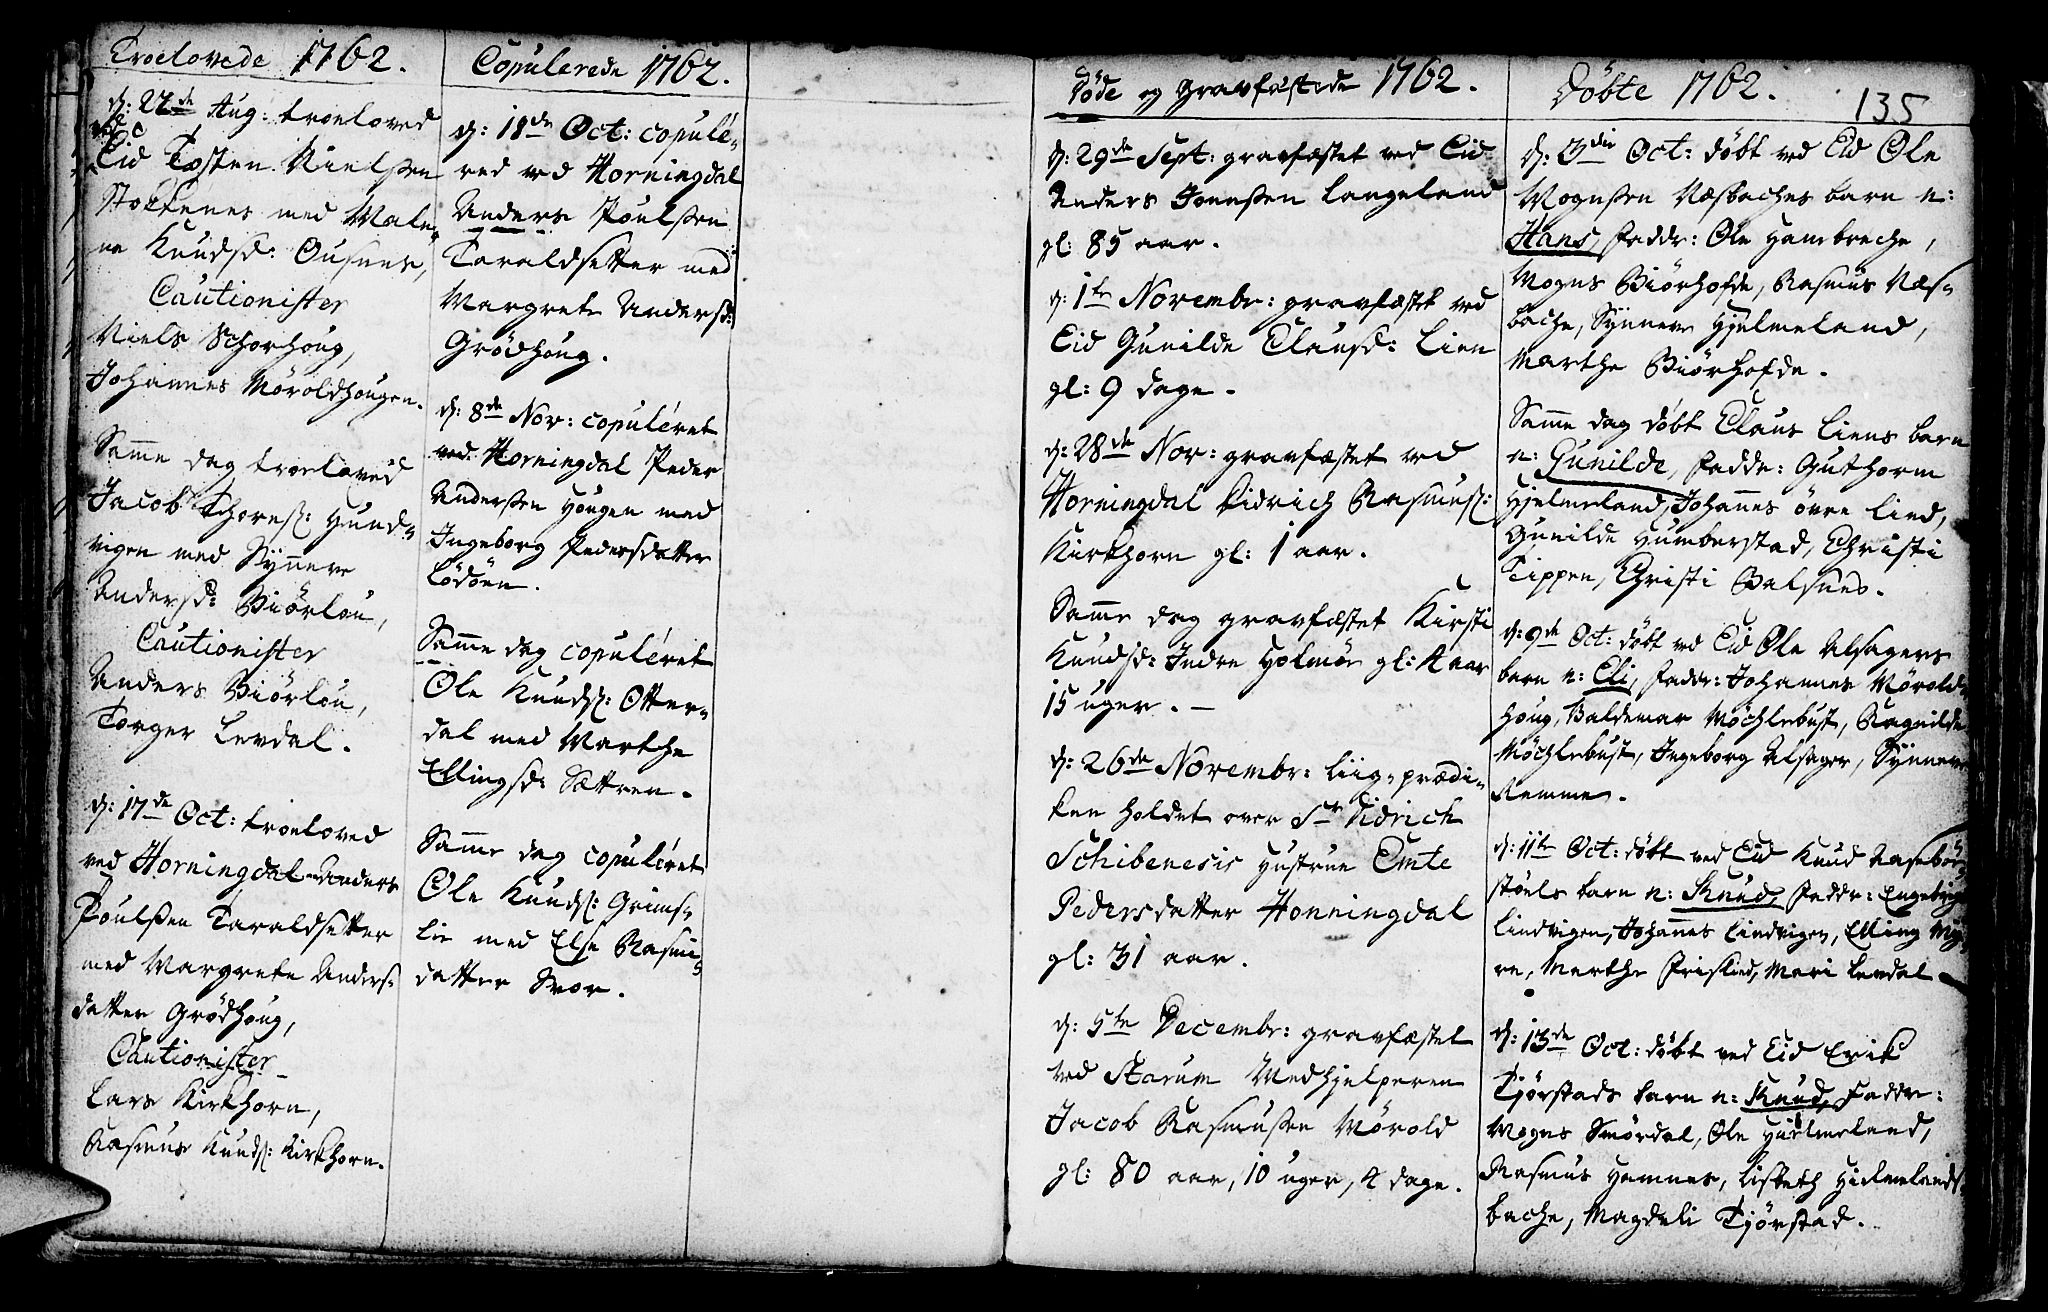 Troelovede 1762.
d: 22de Aug: troeloved
ved
Eid Tosten Nielssen
Stokkenes med Male-
ne Knudsd: Ousnes,
Cautionister
Niels Schorhoug,
Johannes Möroldhougen.
Samme dag troeloved
Jacob Thorens: Hund-
vigen med Synneve
Andersd: Biörlou,
Cautionister
Anders Biörlou,
Torger Levdal.
d: 17de Oct: troeloved
ved Horningdal Anders
Poulssen Taraldsetter
med Margrete Anders-
datter Grödhoug,
Cautionister
Lars Kirkhorn,
Rasmus Knuds: Kirkhorn.
Copulerede 1762.
d: 18de Oct: copule-
red ved Horningdal
Anders Poulssen
Taraldsetter med
Margrete Andersd:
Grödhoug.
d: 8de Nov: copuleret
ved Horningdal Peder
Anderssen Hougen med
Ingeborg Pedersdatter
Lödöen.
Samme dag copuleret
Ole Knuds: Otter-
dal med Marthe
Ellingsd: Sættren.
Samme dag copuleret
Ole Knuds: Grims-
lie med Else Rasmi-
datter Svor.
Döde og gravfæstede 1762.
d: 29de Sept: gravfæstet ved Eid
Anders Jonssen Langeland
gl: 85 aar.
d: 1te Novembr: gravfæstet ved
Eid Gunilde Clausd: Lien
gl: 9 dage.
d: 28de Nov: gravfæstet ved
Horningdal Didrich Rasmus:
Kirkhorn gl: 1 aar.
Samme dag gravfæstet Kirsti
Knudsd: Indre Holmöe gl: 4 aar
15 uger.
d: 26de Novembr: Liig-prædi-
ken holdet over Sr Didrich
Schibenesis Hustrue Emte
Pedersdatter Honningdal
gl: 31 aar.
d: 5te Decembr: gravfæstet
ved Starum Medhjelperen
Jacob Rasmussen Mörold
gl: 80 aar, 10 uger, 4 dage.
Döbte 1762.
135
d: 3die Oct: döbt ved Eid Ole
Mognssen Næsbaches barn n:
Hans, Faddr: Ole Hambreche,
Mogns Biörhofde, Rasmus Næs-
bache, Synneve Hjelmeland,
Marthe Biörhofde.
Samme dag döbt Claus Liens barn
n: Gunilde, Faddr: Guthorm
Hjelmeland, Johannes övre Lied,
Gunilde Humberstad, Christi
Tippen, Christi Balsnes.
d: 9de Oct: döbt ved Eid Ole Alsagers
barn n: Eli, Faddr: Johannes Mörold-
houg, Baldemar Möchlebust, Ragnilde
Möchlebust, Ingeborg Alsager, Synneve
Remme.
d: 11te Oct: döbt ved Eid Knud Nasebör-
stöels barn n: Knud, Faddr: Engebrigt
Lindvigen, Johannes Lindvigen, Elling My-
re, Marthe Frislied, Mari Levdal
d: 13de Oct: döbt ved Eid Erik
Tjörstads barn n: Knud, Faddr:
Mogns Smördal, Ole Hielmeland,
Rasmus Hamnes, Lisbeth Hielmelands-
bache, Magdeli Tjörstad.